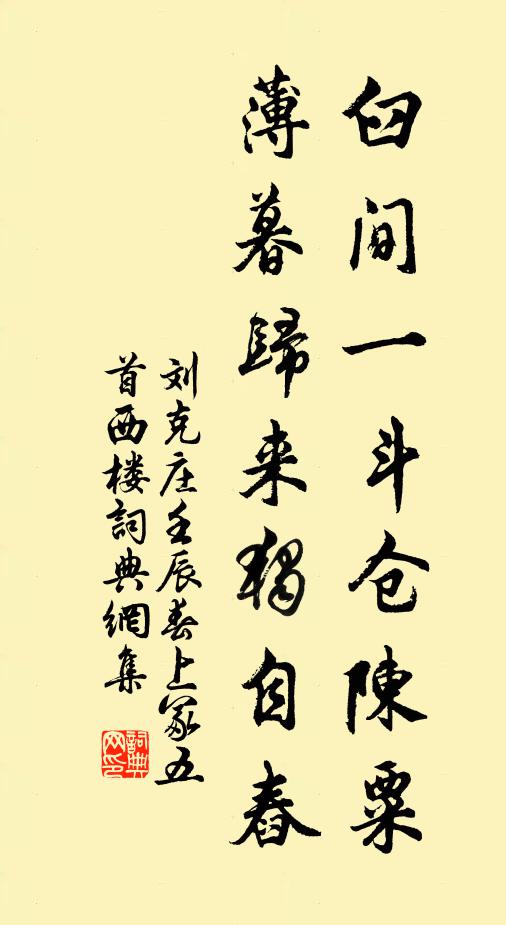 臼间一斗仓陳粟
薄暮歸来独自舂
刘克庄壬辰春上冢五
首西楼詞典網集
詞典
网印